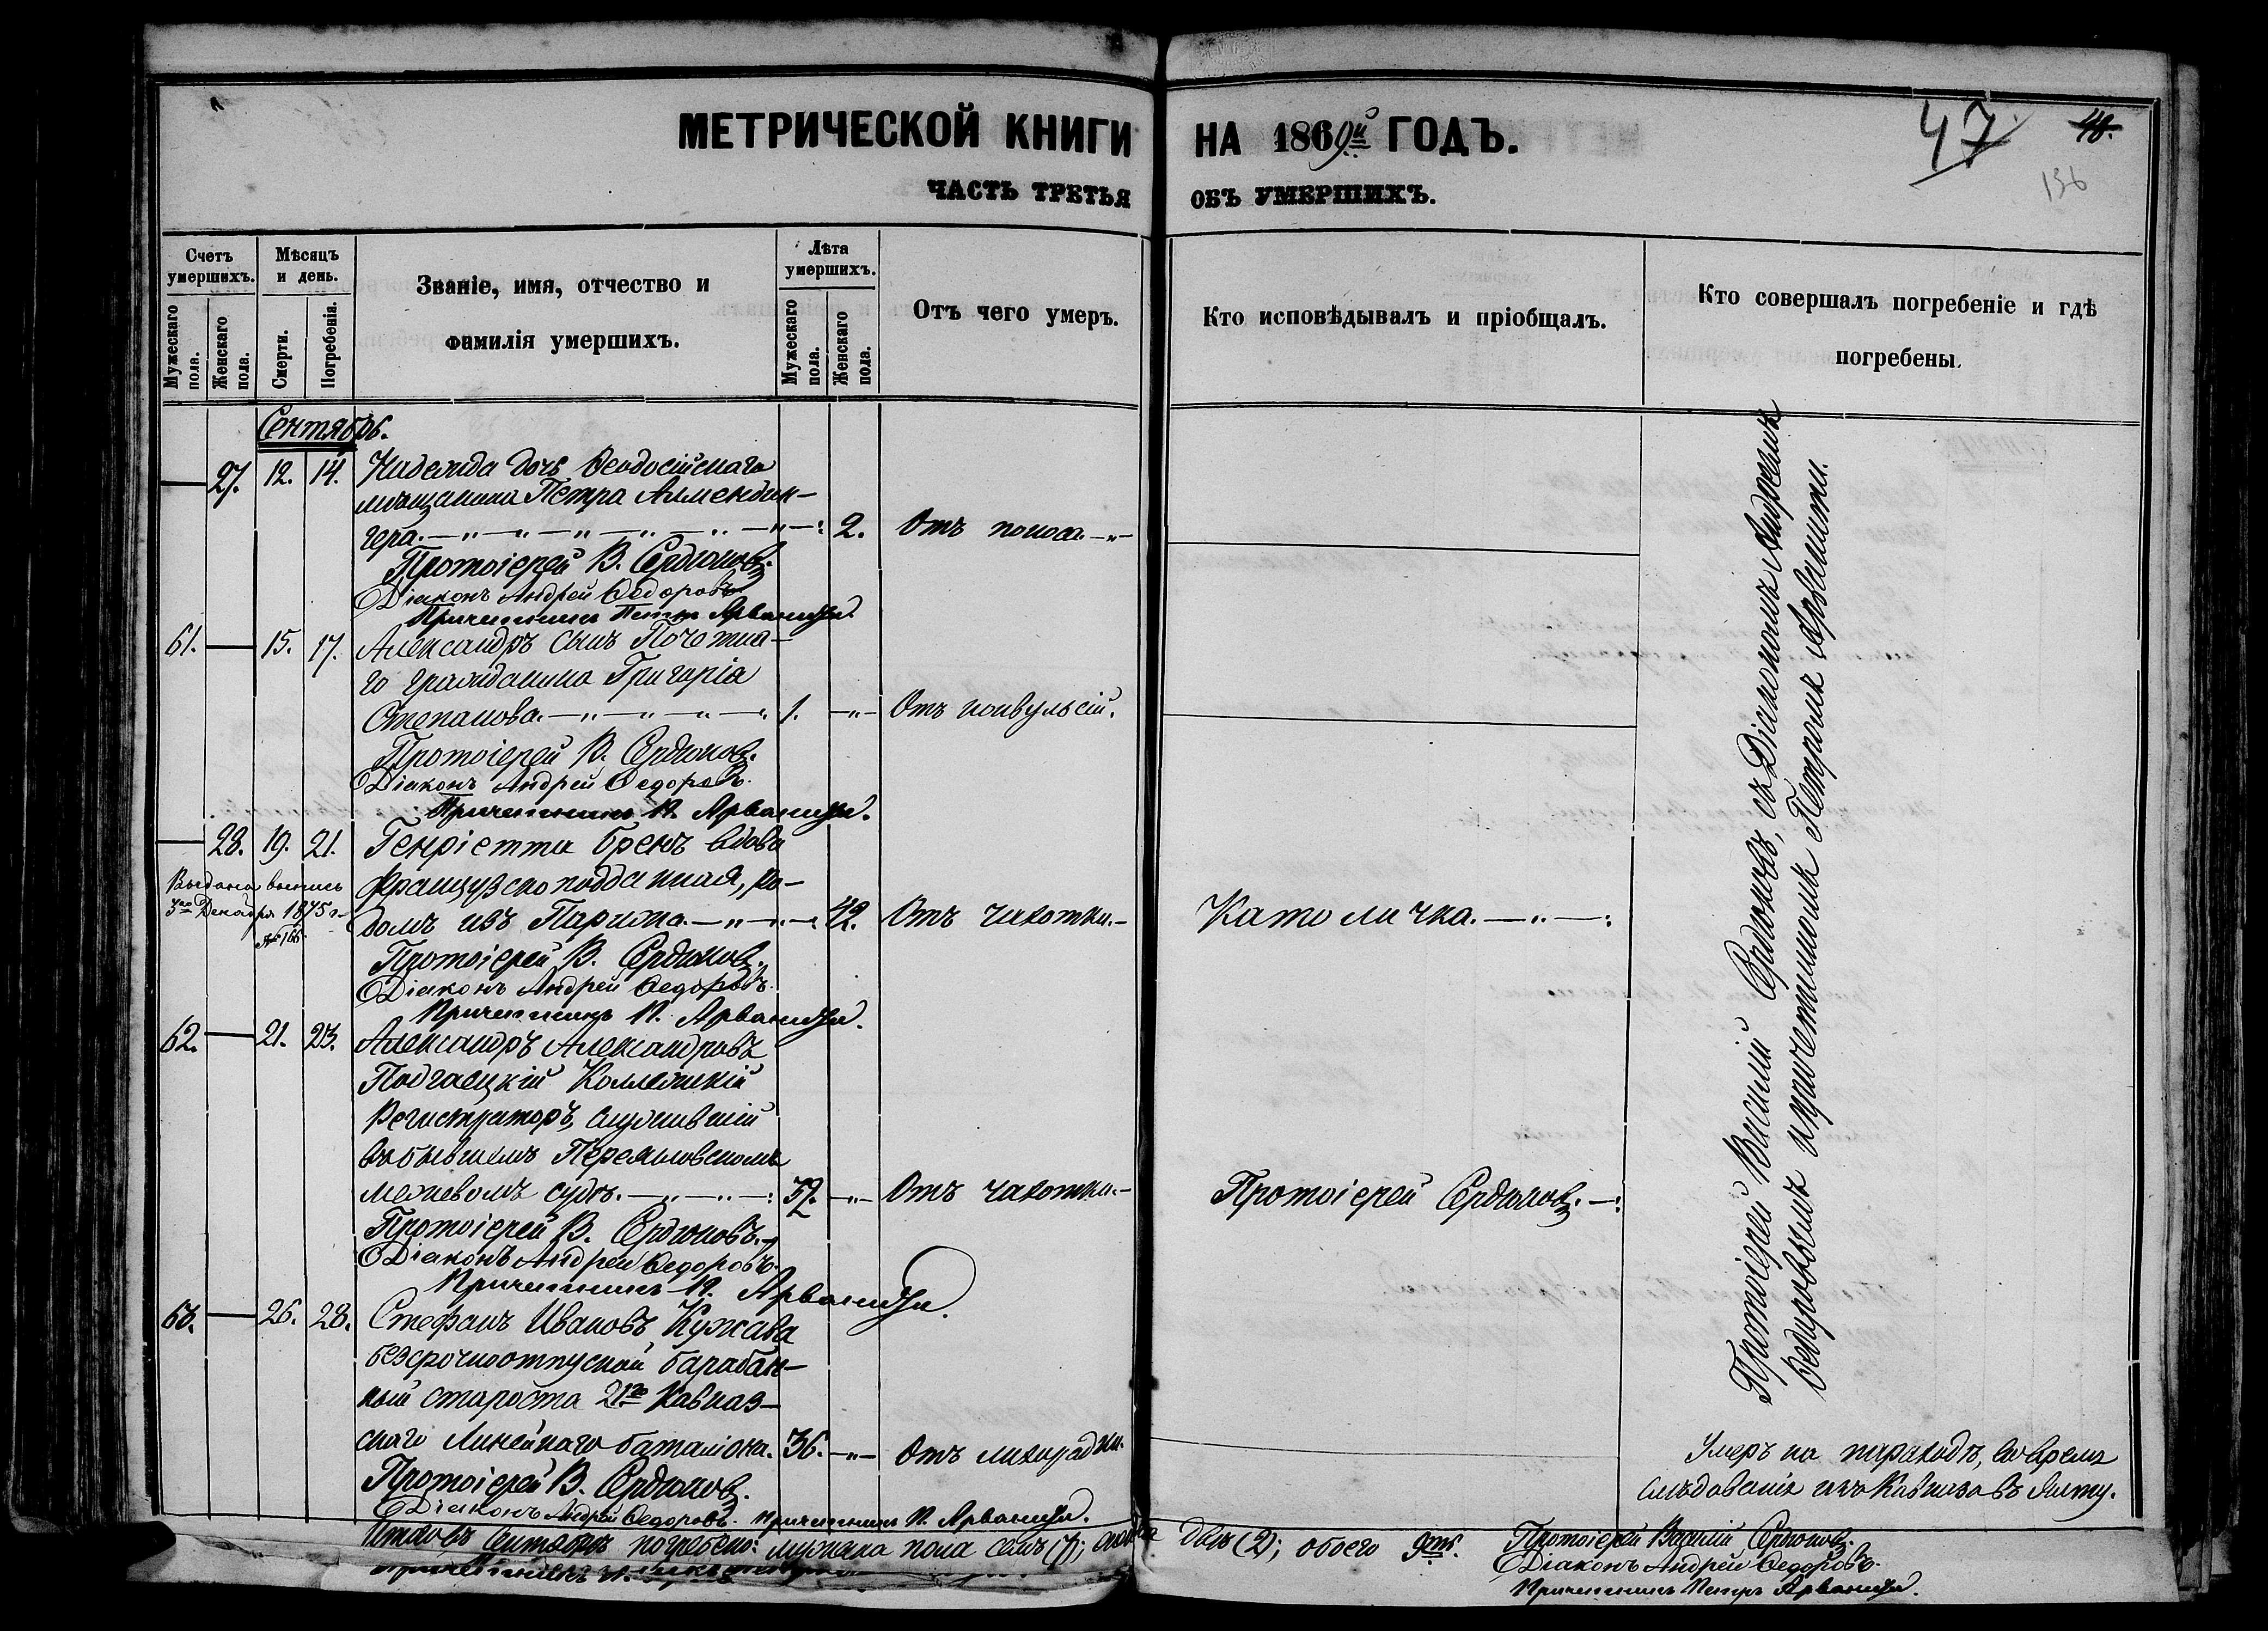 МЕТРИЧЕСКОЙ КНИГИ НА 1869й ГОДЪ.
47
48.
136
ЧАСТЬ ТРЕТЬЯ ОБЪ УМЕРШИХЪ.
Счетъ умершихъ.
Мужескаго пола.
Женскаго пола.
Мѣсяцъ и день.
Смерти.
Погребенія.
Званіе, имя, отчество и
фамилія умершихъ.
Лѣта умершихъ.
Мужескаго пола.
Женскаго пола.
Отъ чего умеръ.
Кто исповѣдывалъ и пріобщалъ.
Кто совершалъ погребеніе и гдѣ
погребены.
Сентябрь.
27. 12. 14. Надежда дочь Ѳеодосійскаго
мѣщанина Петра Алмендин-
гера. 2. Отъ поноса.
Протоіерей В. Сердюковъ.
Діаконъ Андрей Ѳедоровъ
Причетникъ Петръ Арваниди.
61. 15. 17. Александръ сынъ Почетна-
го гражданина Григорія
Степанова. 1. Отъ конвульсій.
Протоіерей В. Сердюковъ.
Діаконъ Андрей Ѳедоровъ.
Причетникъ П. Арваниди.
28. 19. 21. Генріетта Бренъ вдова
французскоподданная, ро-
домъ изъ Парижа. 42. Отъ чахотки. Католичка.
Выдана выпись
3го Декабря 1875 г.
№ 166.
Протоіерей В. Сердюковъ.
Діаконъ Андрей Ѳедоровъ.
Причетникъ П. Арваниди.
62. 21. 23. Александръ Александровъ
Подгаецкій Коллежскій
Регистраторъ, служившій
въ бывшемъ
межевомъ судѣ. 32. Отъ чахотки. Протоіерей Сердюковъ.
Протоіерей В. Сердюковъ.
Діаконъ Андрей Ѳедоровъ.
Причетникъ П. Арваниди.
63. 26. 28. Стефанъ Ивановъ Кужава
безсрочноотпускной барабан-
ный староста 21го Кавказ-
скаго Линейнаго баталіона. 36. Отъ лихорадки.
Протоіерей В. Сердюковъ.
Діаконъ Андрей Ѳедоровъ. Причетникъ П. Арваниди.
Протоіерей Василій Сердюковъ, съ Діакономъ Андреемъ
Ѳедоровымъ и причетникомъ Петромъ Арваниди.
Умеръ на пароходѣ, во время
слѣдованія изъ Кавказа въ Ялту.
Итого въ Сентябрѣ погребено: мужеска пола семь (7); женска двѣ (2); обоего 9ть.
Протоіерей Василій Сердюковъ.
Діаконъ Андрей Ѳедоровъ.
Причетникъ Петръ Арваниди.